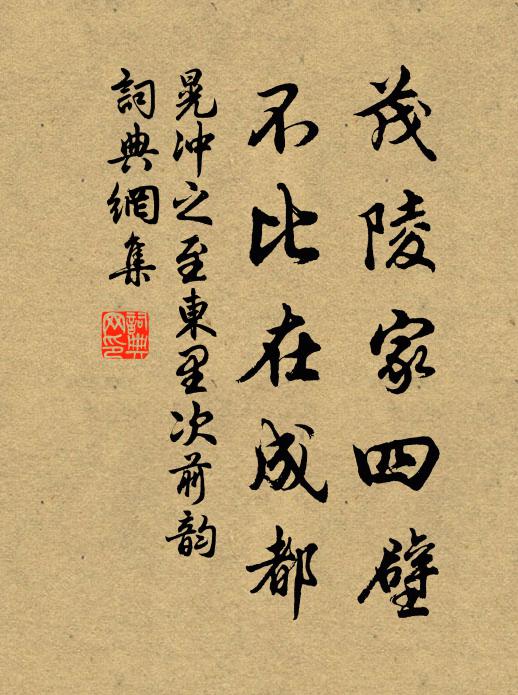 茂陵家四壁
不比在成都
晁冲之至東里次前韵
詞典網集
詞典
网印